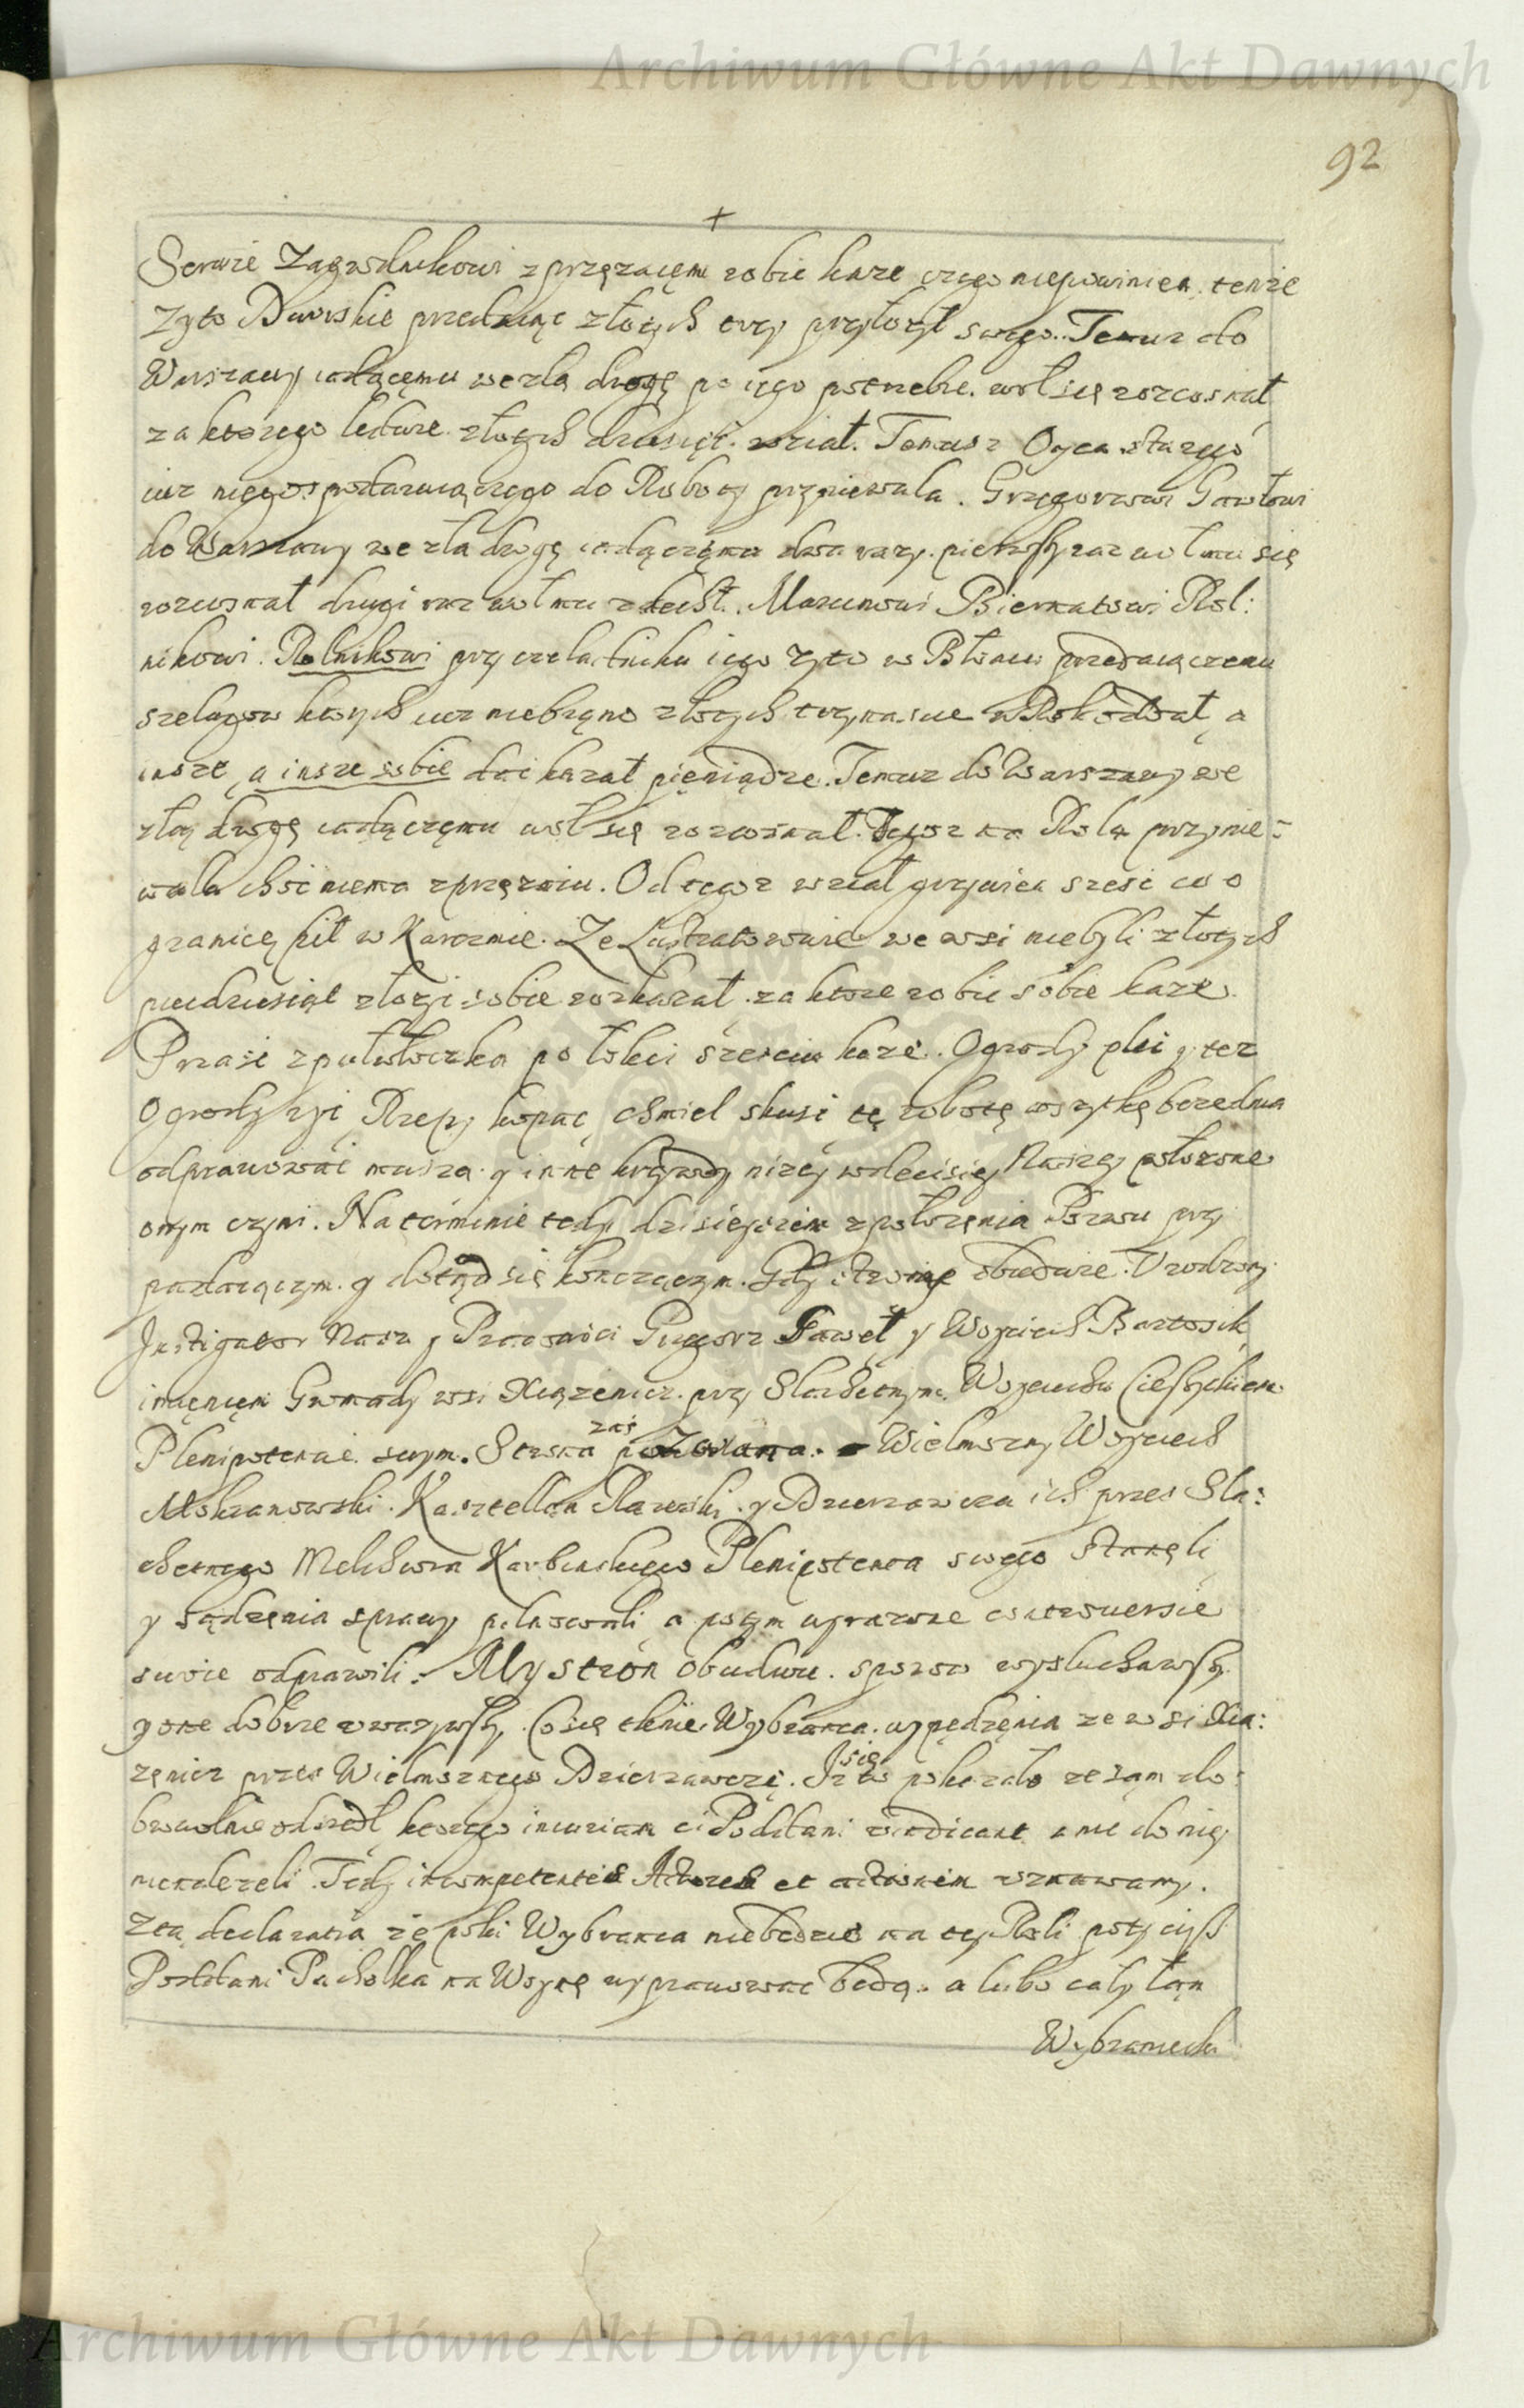 Archiwum Główne Akt Dawnych
92
Serwie Zagrodnikowi z przężaięm robic każe czego niepowinien. tenże
Zyto Dworskie przedaiąc złotych trzy przyłozył swego. Temuz do
Warszawy iadącemu we złą drogę po iego potrzebie. woł się rozcosnął
za ktorego ledwie złotych dziesięc. wziął. Tomasz Oyca starego
iuz niegospodaruiącego do Roboty przyniewala. Grzegorzowi Gawłowi
do Warszawy we zła drogę iadączęmu dwa razy. pierwszy raz woł mu się
rozcosnął drugi raz woł mu zdechł. Marcinowi Biernatowi Rol:
nikowi. Rolnikowi przy czeladniku iego Zyto w Błoniu przedaiączemu
szelągow ktorych iuz niebrąno złotych trzynascie
insze, a insze sobie dać kazał pięniądze. Temuz do Warszawy we
złą drogę iadączęmu woł się rozcosnął. Tegoz na Rolą przynie:
wala choć niema zprzężaiu. Od tegoz wziął grzywien szesć co o
granicę pił w Karczmie. Ze Lustratorowie we wsi niebyli złotych
piedziesiąt złozyc sobie roskazał. za ktore robic sobie każe.
Prząsć z pułtłoczka po łokci szesciu każe. Ogrody plei y tez
Ogrody ryć Rzepy kopać, chmiel skusć tę robotę wszytkę bezednia
odprawować muszą. y inne krzywdy niżey w decisiey Naszey połozone
onym czyni. Na terminie tedy dzisieyszem z połozęnia Pozwu przy
padaiączym. y dotąd się konczączym. Gdy strony obiedwie. Vrodzony
Instigator Nasz y Pracowici Grzegorz Gaweł y Woyciech Bartosik
imięnięm Gromady wsi Xiążenicz. przy Slachetnym. Woyciechu Cieszyckiem
Plenipotencie swym. Strona zaś pozwana. Wielmozny Woyciech
Mokranowski. Kasztellan Rawski. y Dzierzawcza ich przez Sla:
chetnego Melchiora Karbinskiego Plenipotenta swego stanęli
y sądzęnia sprawy pilnowali, a potym wprzawzie controuersie
swoie odprawili. My stron obudwu. sporow wysłuchawszy
y one dobrze vwazywszy, Co się tknie Wybranca. wypędzęnia ze wsi Xia:
zęnicz przez Wielmoznego Dzierzawczę. Iz się to pokazało ze sąm do:
browolnie odszedł ktorego iniuriam ci Poddani vindicant a nie do nię
nienalezeli. Tedy incompetentes Actores et actionem vznawamy.
Ztą declaratią że poki Wybranca niebędzie na tey Roli poty ciż
Poddani Pachołka na Woynę wyprawowac będą. a lubo cały łąn
Wybraniecki
Archiwum Główne Akt Dawnych